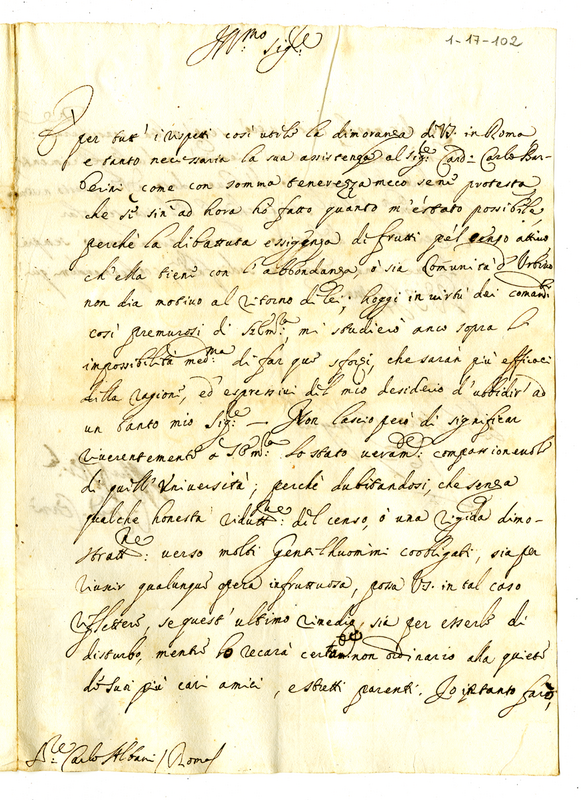 1-17-102
Ill.mo Sig.re
È per tutt' i rispetti così utile la dimoranza di V.S. in Roma
e tanto necessaria la sua assistenza al Sig.r Card. Carlo Bar-
berini come con somma tenerezza meco sene protesta
che se sin' ad hora hò fatto quanto m'è stato possibile,
perche la dibattuta essigenza di frutti pel censo attivo
ch'ella tiene con l'abbondanza, ò sia Comunità d'Urbino
non dia motivo al ritorno di lei; hoggi in virtù dei comandi
così premurosi di S.Em.za mi studierò anco sopra le
impossibilità med.ma di far que sforzi, che saran più efficaci
della ragione, ed espressivi del mio desiderio d'ubbidir' ad
un tanto mio Sig.re — Non lascio però di significar
riverentemente a S.Em.za lo stato veram.te compassionevole
di quell' Università; perche dubitandosi, che senza
qualche honesta reduttne del censo, ò una rigida dimo-
stratt.ne verso molti Gentilhuomini coobligati, sia per
riuscir qualunque opera infruttuosa, possa V.S. in tal caso
riflettere, se quest' ultimo rimedio, sia per esserle di
disturbo, mentre lo recarà certam.te non ordinario alla quiete
de suoi più cari amici, e stretti parenti. Io intanto farò,
S.re Carlo Albani / Roma